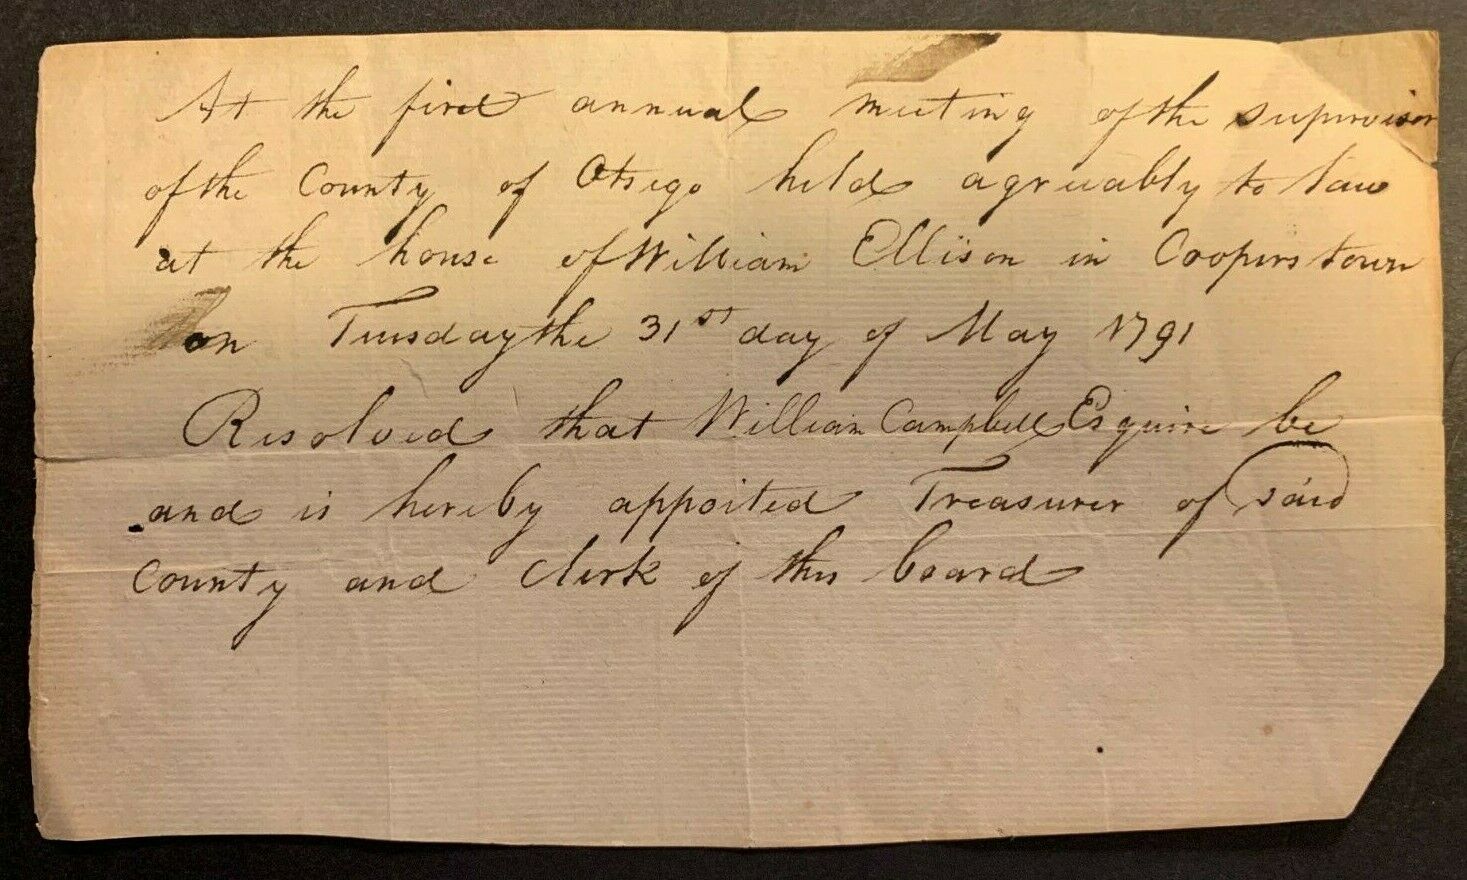 At the first annual meeting of the supervisor
of the County of Otsego held agreeably to law
at the house of William Ellison in Cooperstown
on Tuesday the 31st day of May 1791
Resolved that William Campbell Esquire be
and is hereby appoited Treasurer of said
County and Clerk of this board